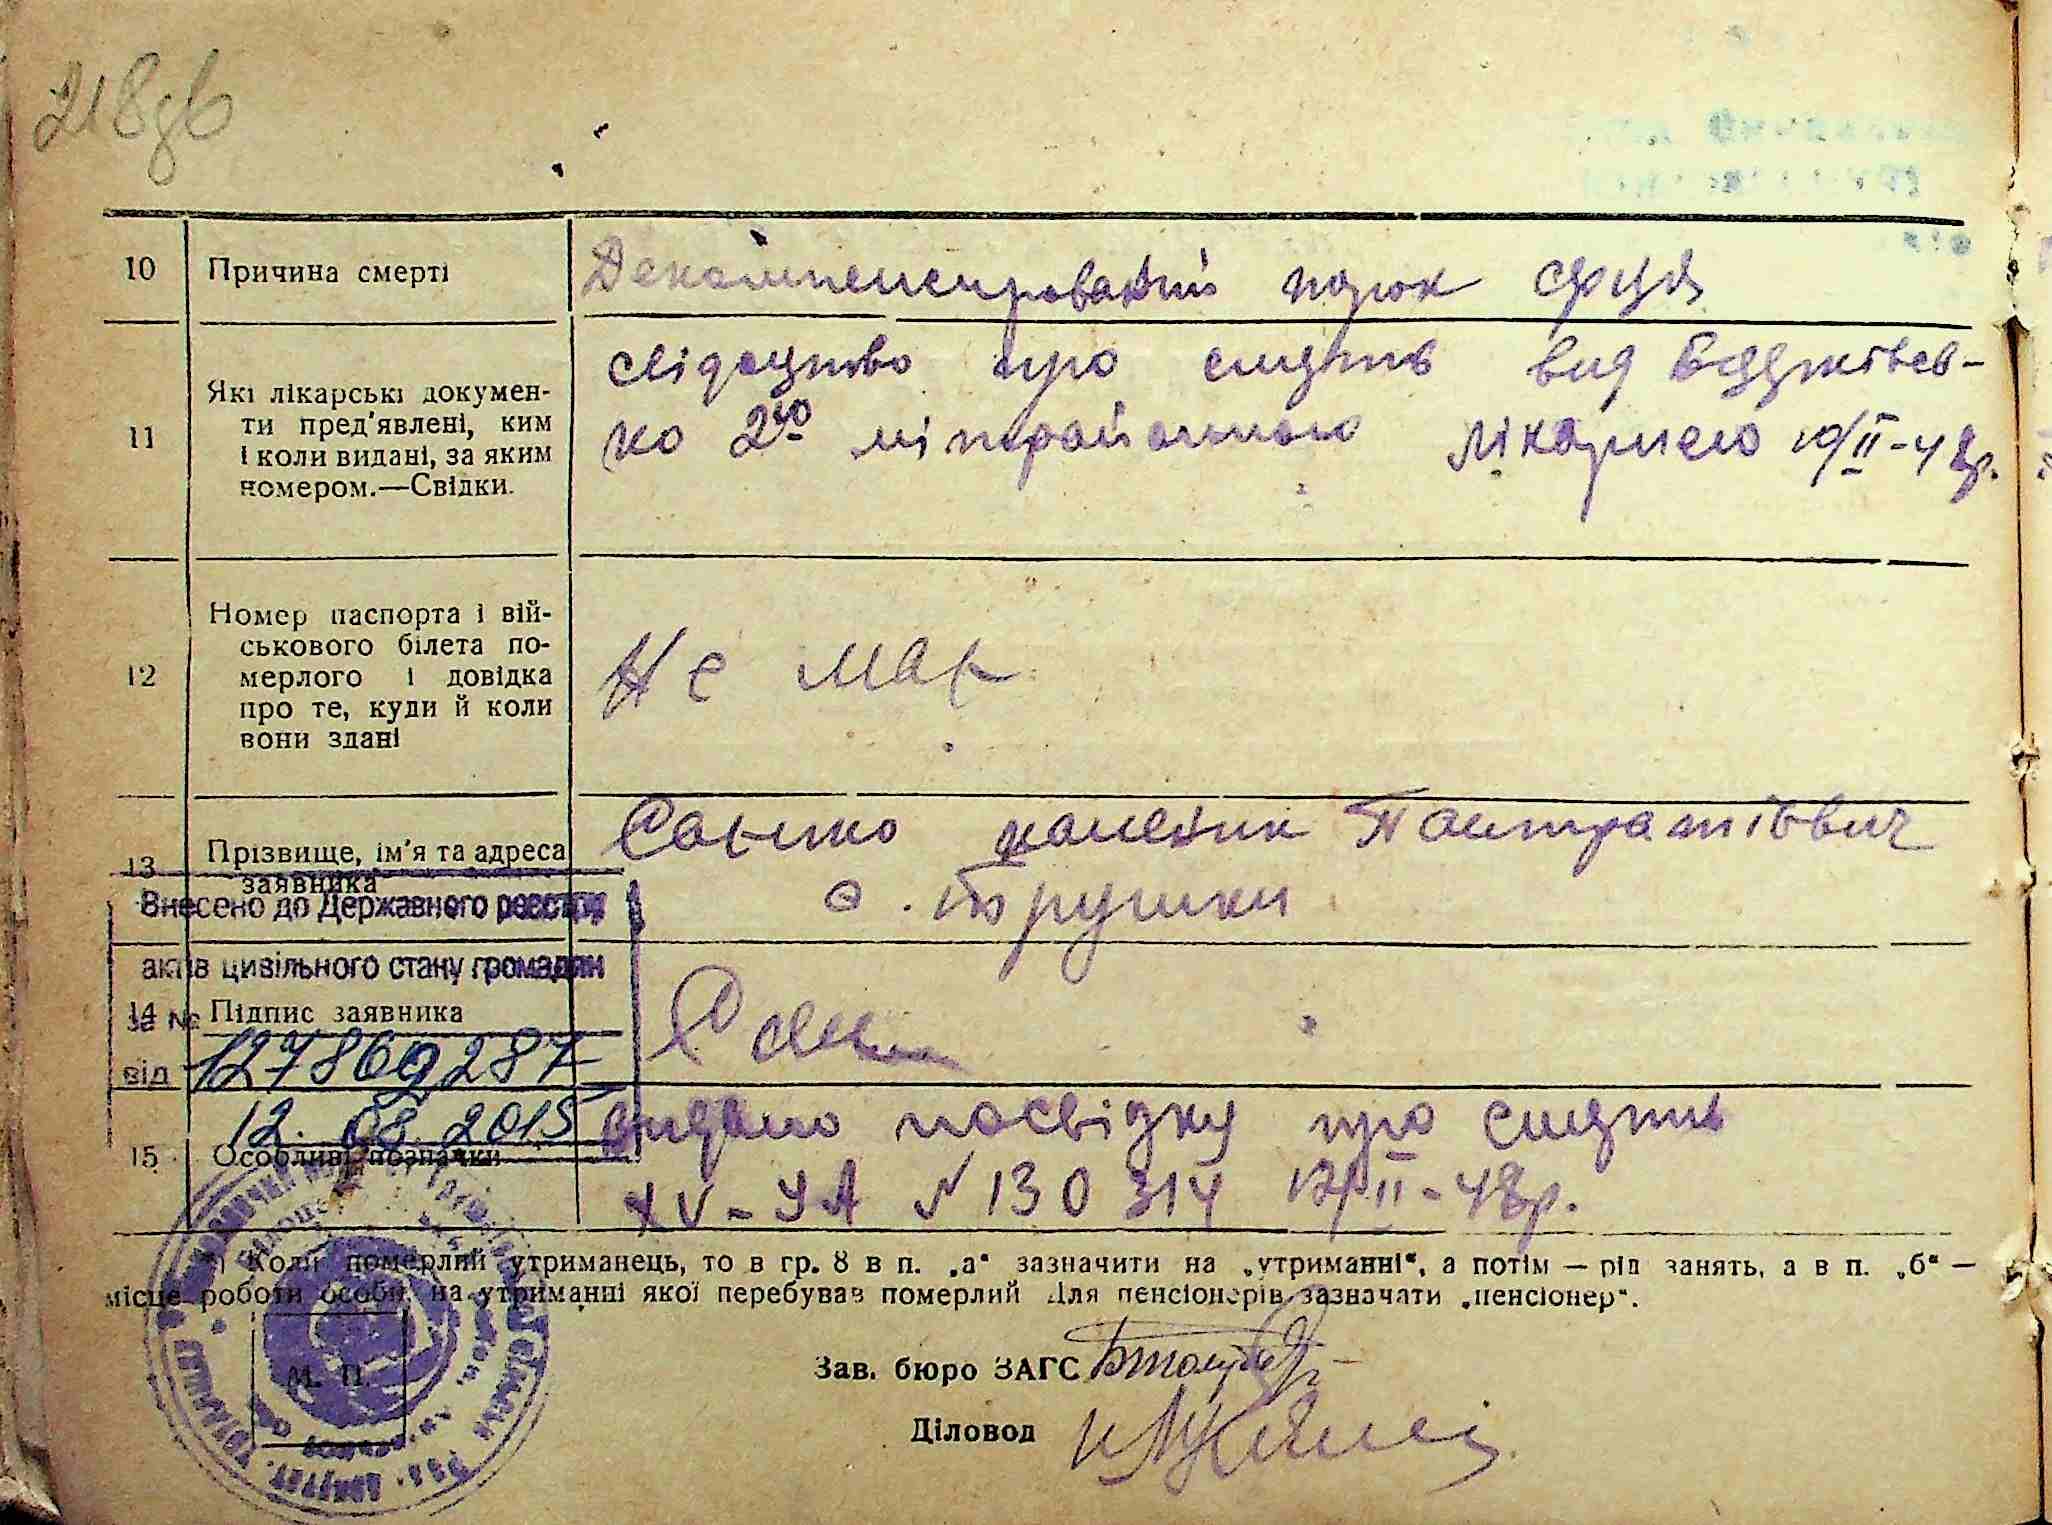 218зв
10 Причина смерті
порок серця
11 Які лікарські докумен-
ти пред'явлені, ким
і коли видані, за яким
номером.—Свідки.
свідоцтво про смерть вид
2ю лікарнею 10/II-48р.
12 Номер паспорта і вій-
ськового білета по-
мерлого і довідка
про те, куди й коли
вони здані
Не має
13 Прізвище, ім'я та адреса
заявника
с. Трушки
Внесено до Державного реєстру
актів цивільного стану громадян
за №
14 Підпис заявника
127869287
від
12.08.2015
15 Особливі позначки
видано посвідку про смерть
XV-УА № 130314 12/II-48р.
Коли померлий утриманець, то в гр. 8 в п. „а“ зазначити на „утриманні“, а потім — рід занять, а в п. „б“ —
місце роботи особи, на утриманні якої перебував померлий Для пенсіонерів зазначати „пенсіонер“.
М. П.
Зав. бюро ЗАГС
Діловод